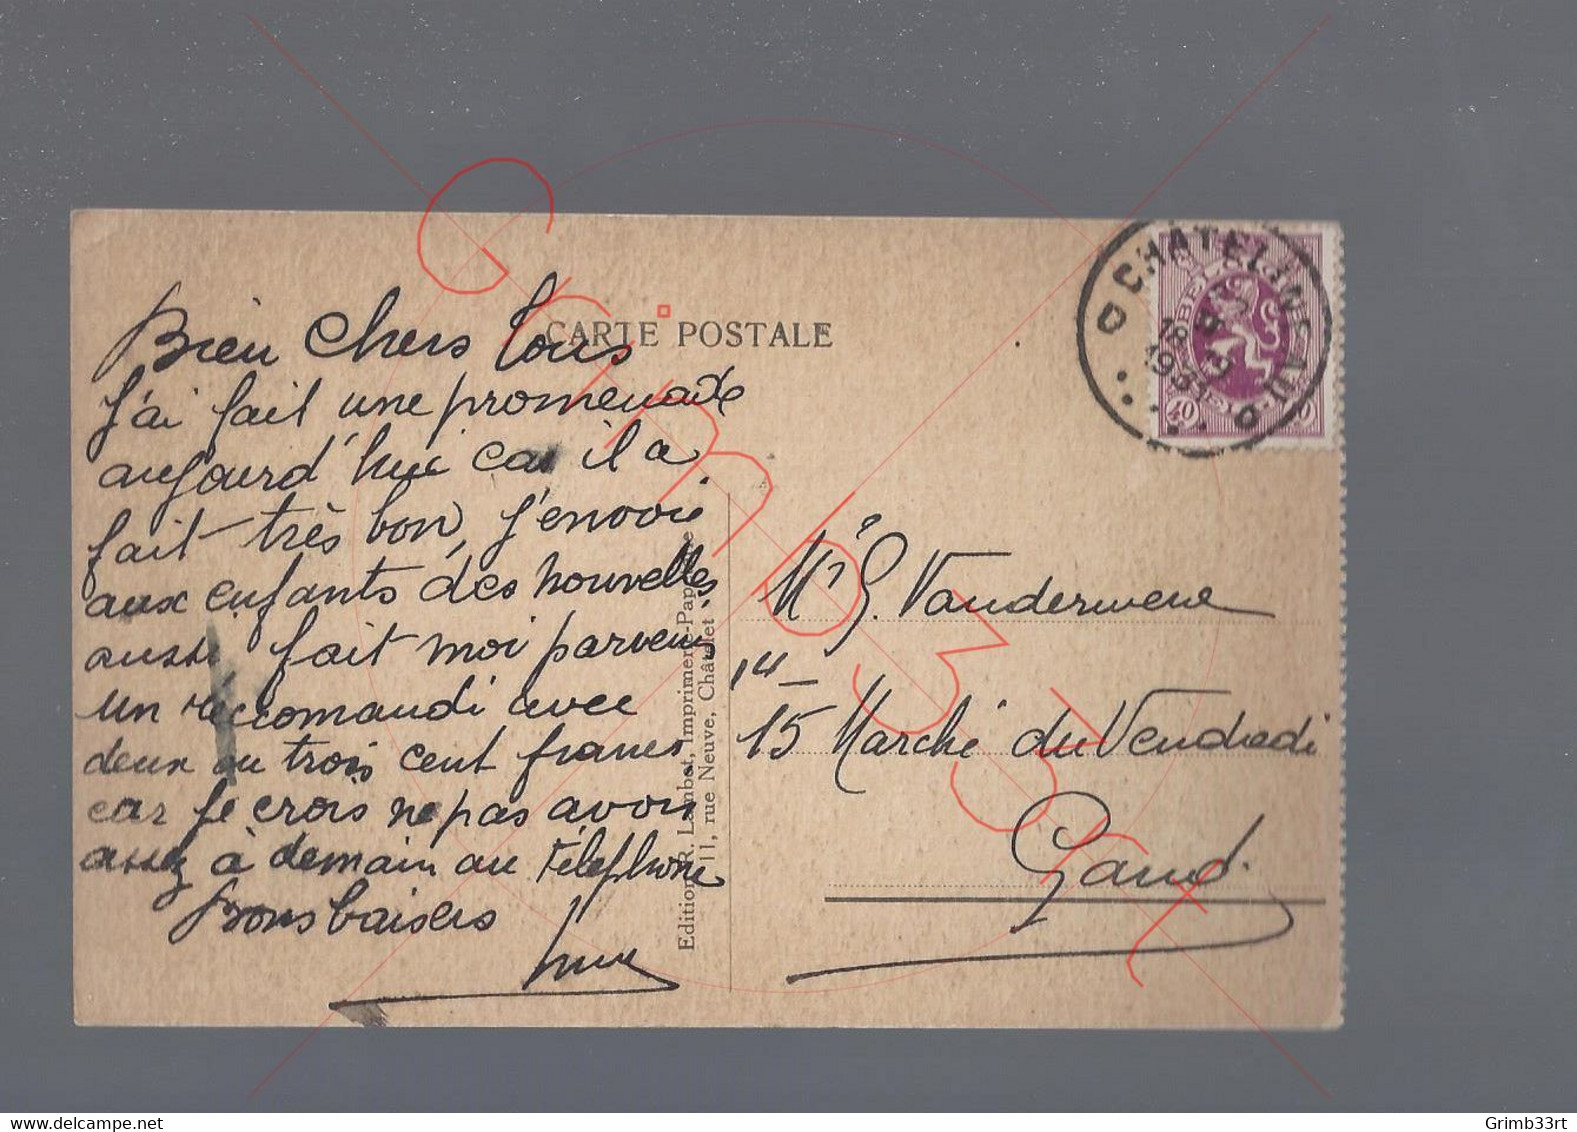 CARTE POSTALE
Bien chers tous
J'ai fait une promenade
aujourd'hui car il a
fait très bon, j'envoie
aux enfants des nouvelles
aussi fait moi parvenir
un réccomandi avec
deux ou trois cent francs
car je crois ne pas avoir
assez à demain au téléphone
bons baisers
Edition R. Lambot, Imprimerie-Pap
11, rue Neuve, Châtelet
CHATELINEAU
18
1931
BELGIQUE
BELGIE
40
Mr G. Vanderwene
14-
15 Marché du Vendredi
Gand
Grimb33rt
Grimb33rt